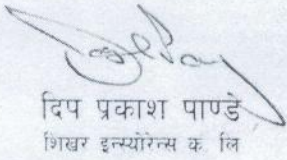 दिप प्रकाश पाण्डे
शिखर इन्स्योरेन्स क. लि